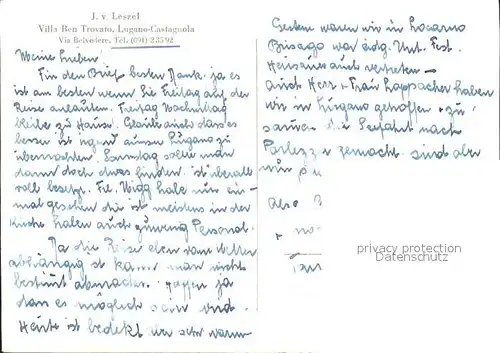 J. v. Leszel
Villa Ben Trovato, Lugano-Castagnola
Via Belvedere, Tel. (091) 235 92
Meine Lieben
Für den Brief besten Dank. ja es
ist am besten wenn Sie Freitag auf der
Reise anläuten. Freitag Nachmittag
bleibe zu Hause. Glaube auch dass es
besser ist irgend aussen Lugano zu
übernachten. Samstag sollte man
dann doch etwas finden. ist überall
voll besetzt. Frl. habe nur ein-
mal gesehen die ist meistens in der
Küche haben auch zuwenig Personal.
Ja die Reise eben vom Wetter
abhängig ist kann man nicht
bestimmt abmachen. Hoffen ja
dass es möglich sein wird.
Heute ist bedeckt aber sehr warm
Gestern waren wir in Locarno
Bisago war eidg. Unt. Fest.
auch vertreten
Auch Herr + Frau haben
wir in Lugano getroffen + zu-
samen die Seefahrt nach
gemacht. sind aber
nur
Also
+
privacy protection
Datenschutz